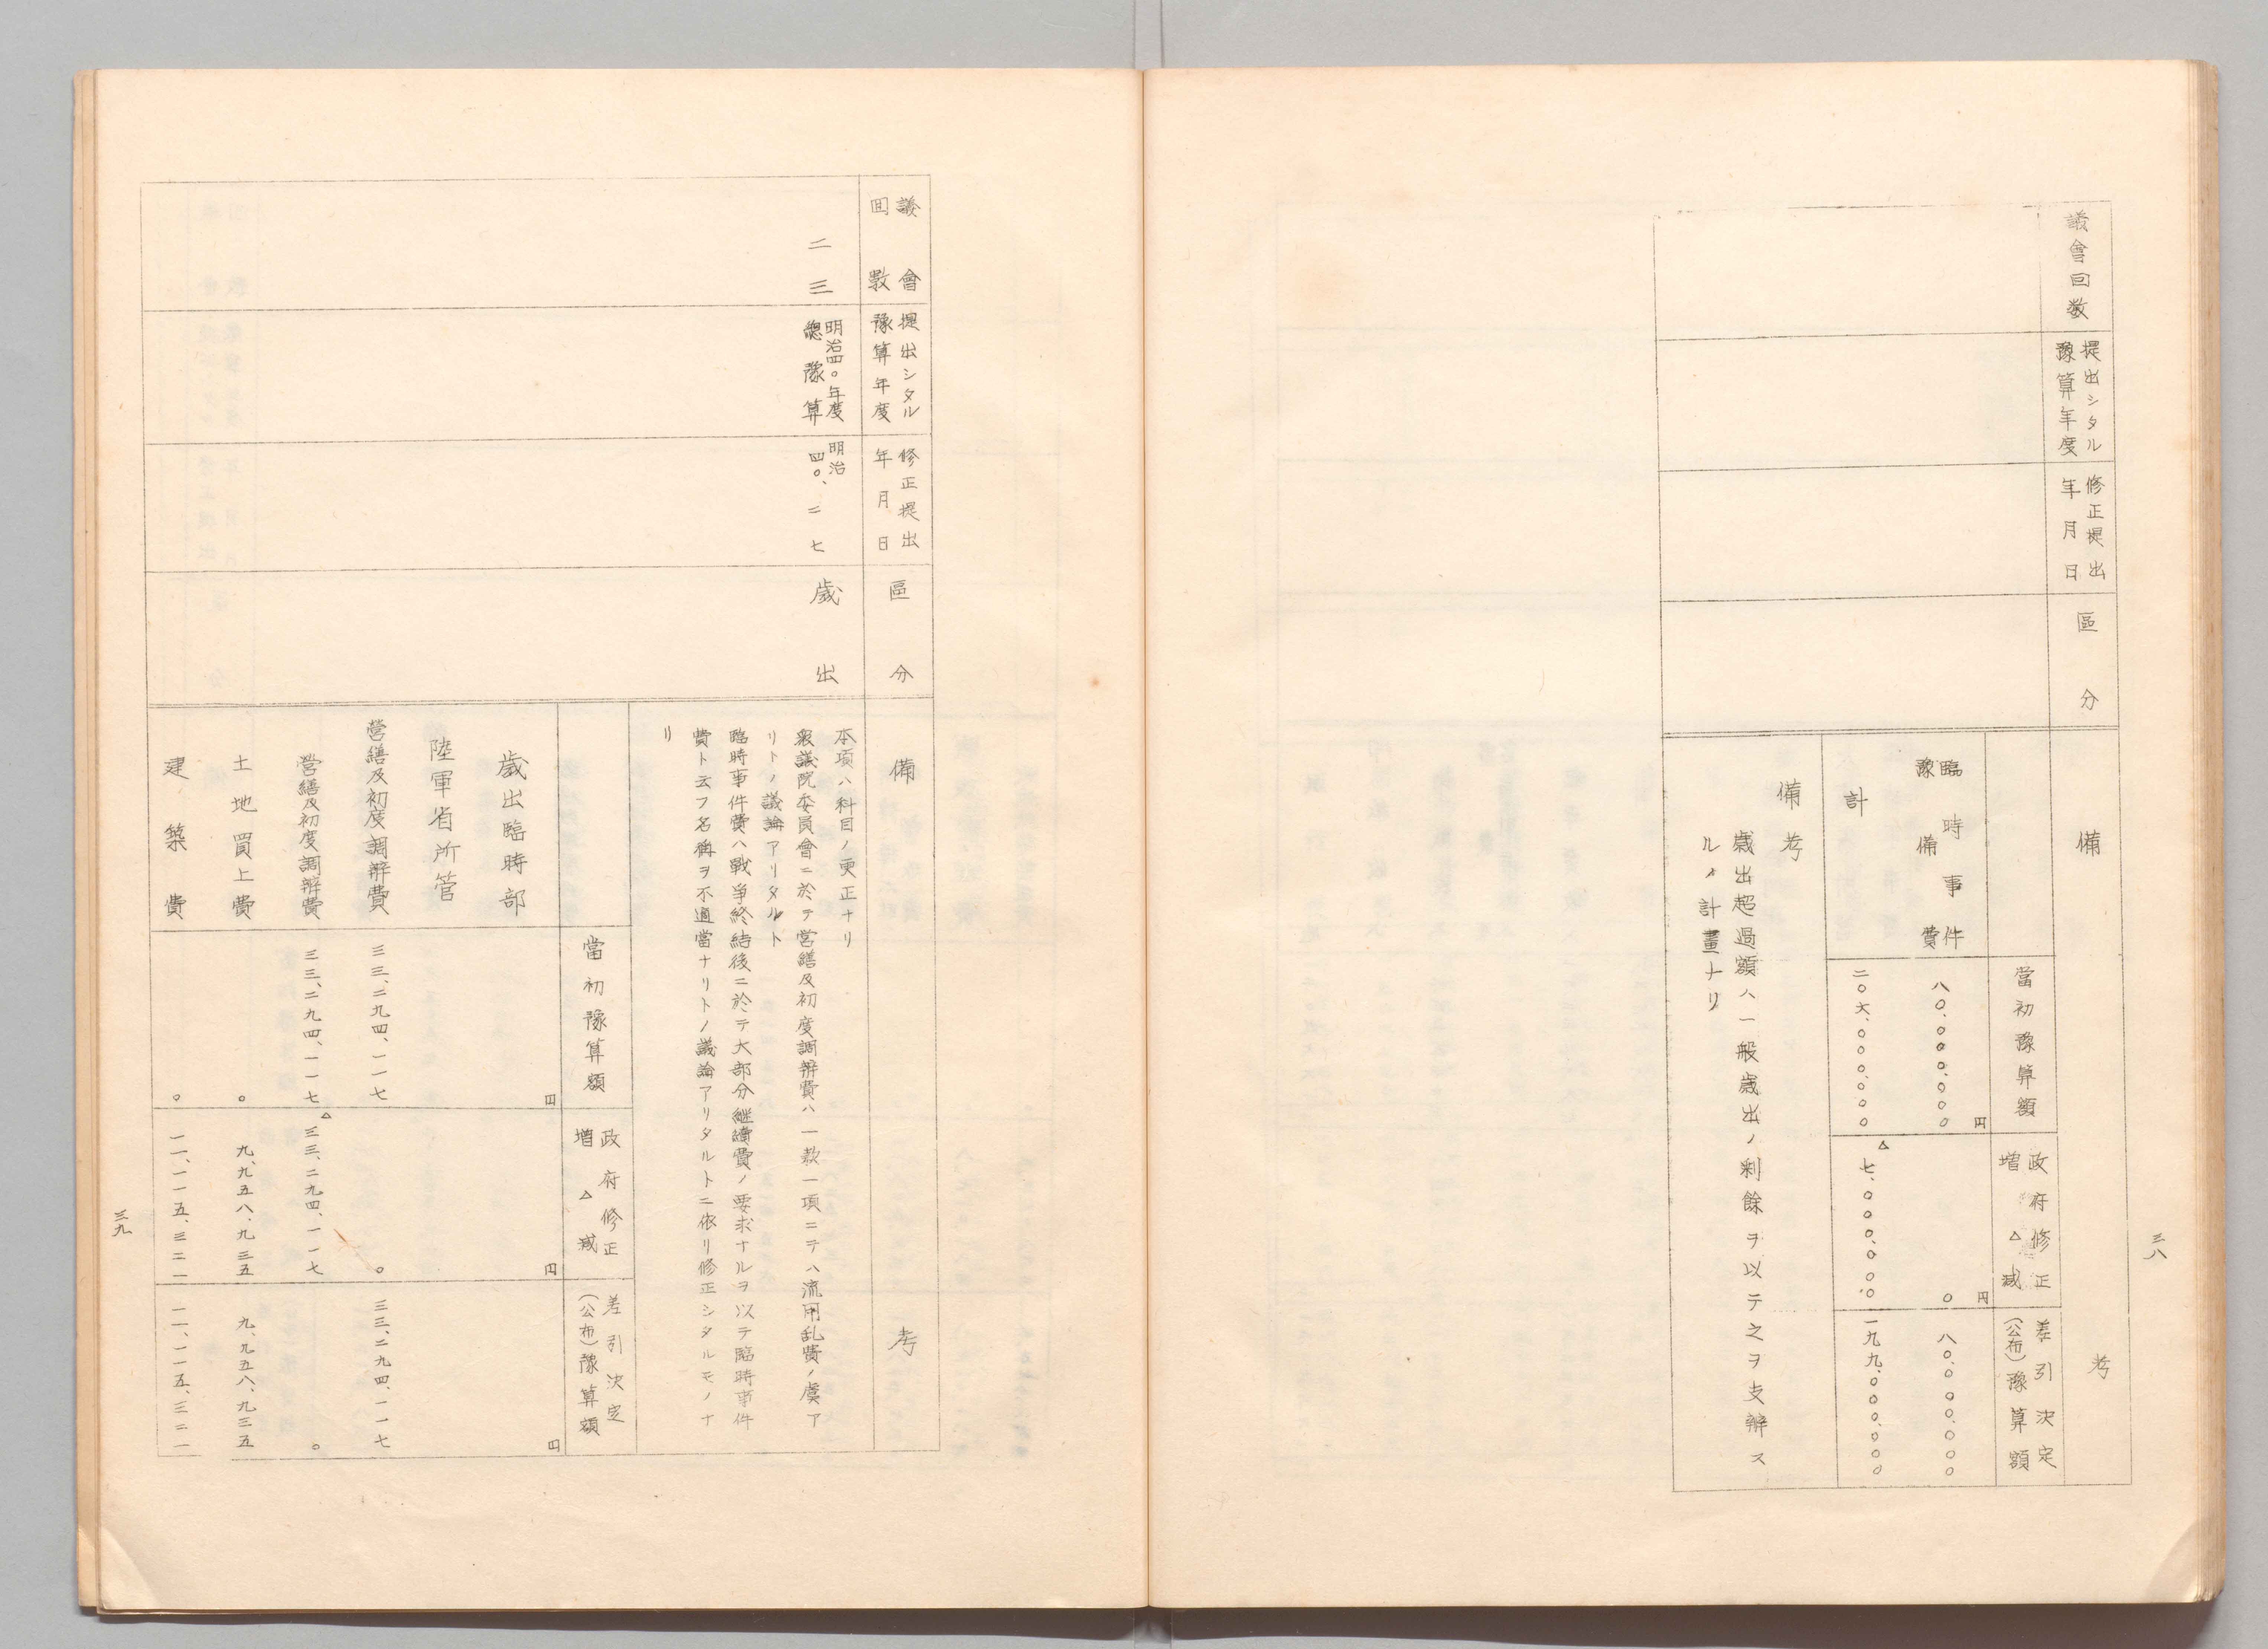 三八
議會回数
提出シタル
豫算年度
修正提出
年月日
區分
備考
當初豫算額
政府修正
増△減
差引決定
(公布)豫算額
臨時事件
豫備費
八〇、〇〇〇、〇〇〇円
〇円
八〇、〇〇〇、〇〇〇
計
二〇六、〇〇〇、〇〇〇
△七、〇〇〇、〇〇〇
一九九、〇〇〇、〇〇〇
備考
歳出超過額ハ一般歳出ノ剰餘ヲ以テ之ヲ支辨ス
ルノ計畫ナリ
議會
回數
提出シタル
豫算年度
修正提出
年月日
區分
備考
二三
明治四〇年度
總豫算
明治
四〇、二、七
歳出
本項ハ科目ノ更正ナリ
衆議院委員會ニ於テ営繕及初度調辨費ハ一款一項ニテハ流用乱費ノ虞ア
リトノ議論アリタルト
臨時事件費ハ戦争終結後ニ於テ大部分継續費ノ要求ナルヲ以テ臨時事件
費ト云フ名稱ヲ不適當ナリトノ議論アリタルトニ依リ修正シタルモノナ
リ
當初豫算額
政府修正
増△減
差引決定
(公布)豫算額
円
円
円
歳出臨時部
陸軍省所管
営繕及初度調辨費
三三、二九四、一一七
〇
三三、二九四、一一七
営繕及初度調辨費
三三、二九四、一一七
△三三、二九四、一一七
〇
土地買上費
〇
九、九五八、九三五
九、九五八、九三五
建築費
〇
一一、一一五、三二一
一一、一一五、三二一
三九